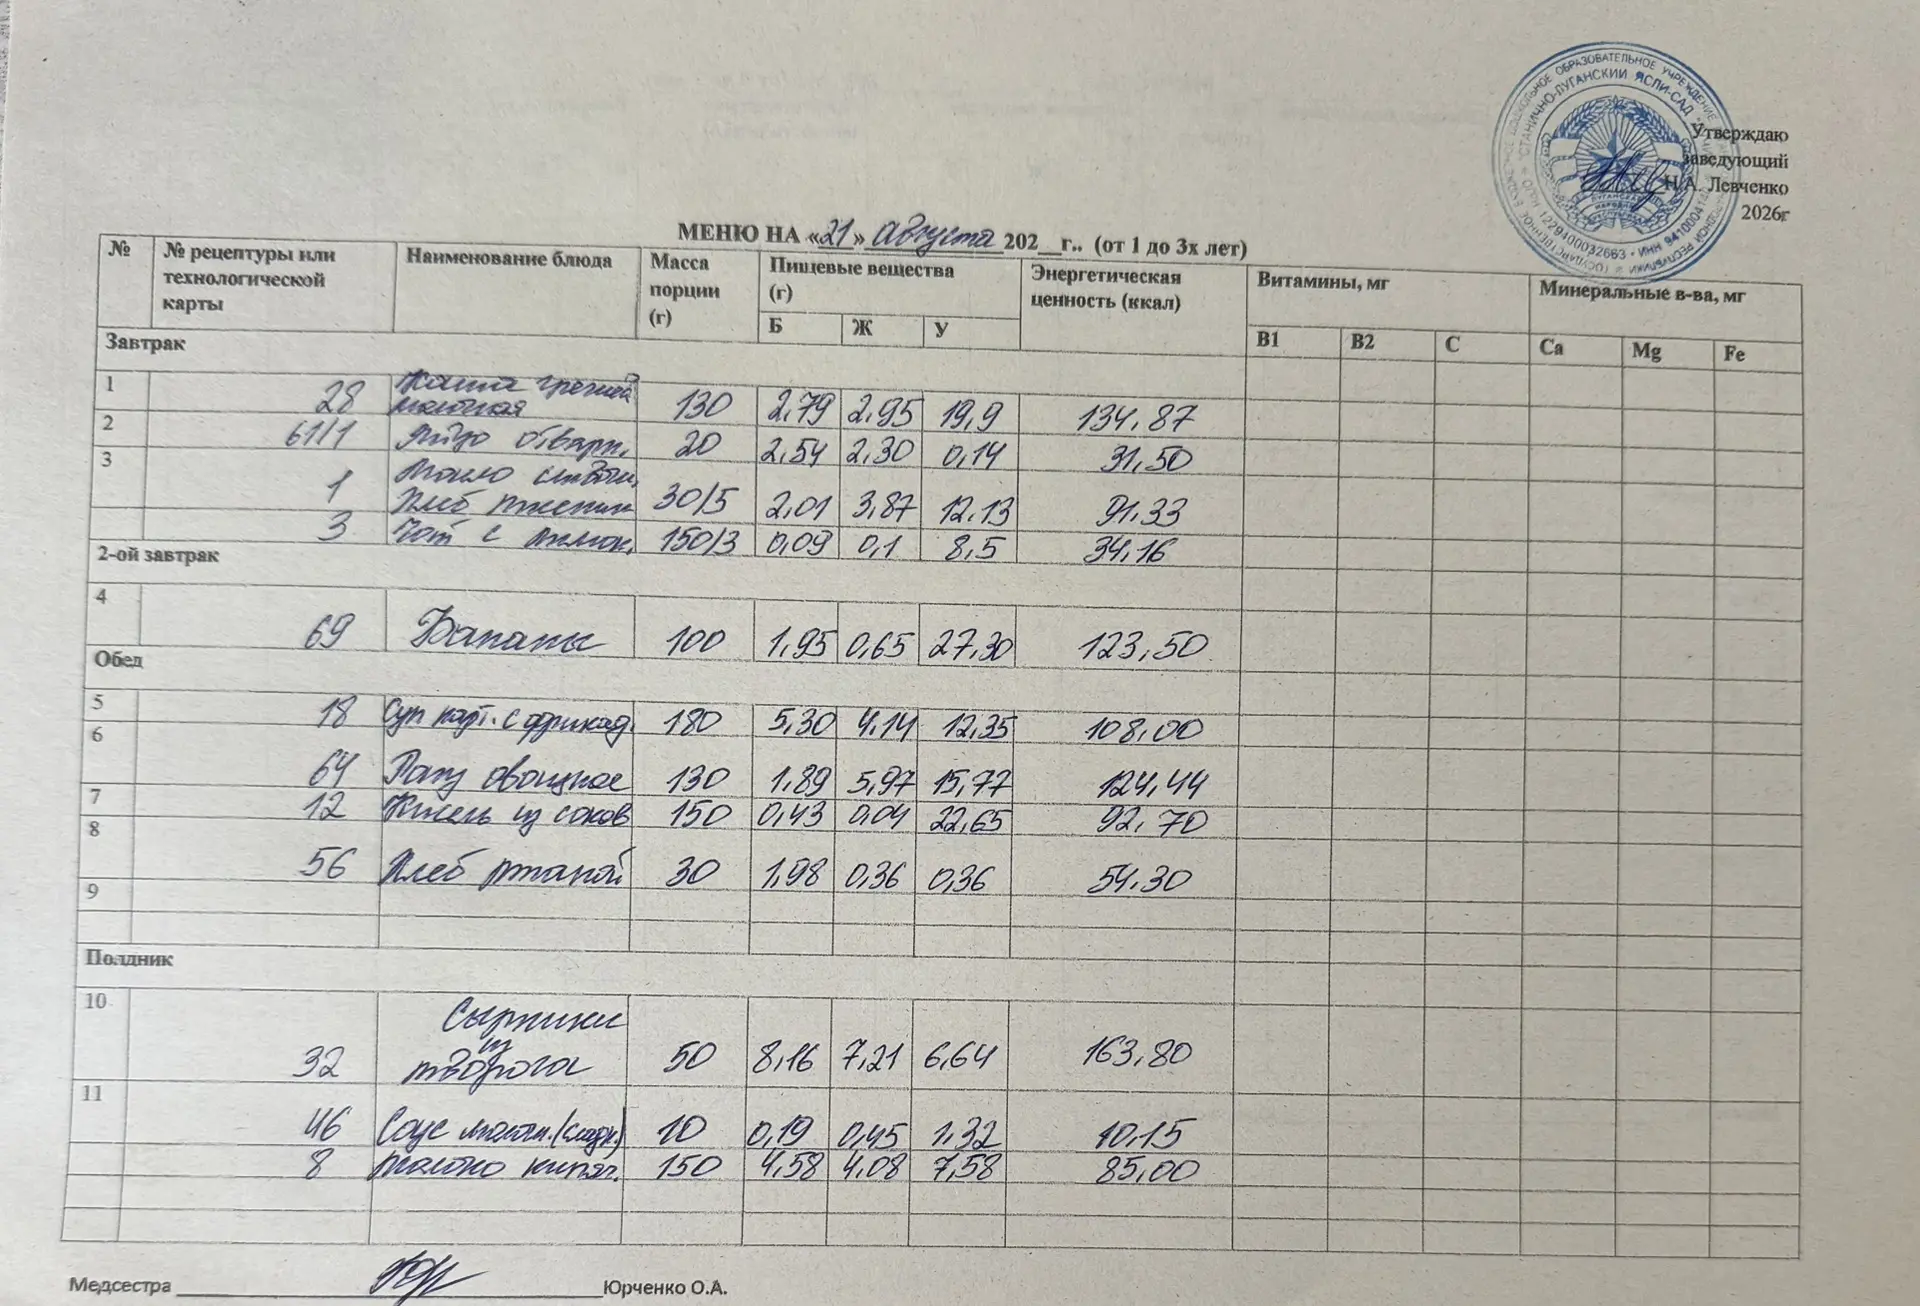 Утверждаю
заведующий
Н.А. Левченко
2026г
МЕНЮ НА «21» Августа 202__г.. (от 1 до 3х лет)
№ № рецептуры или технологической карты Наименование блюда Масса порции (г) Пищевые вещества (г) Энергетическая ценность (ккал) Витамины, мг Минеральные в-ва, мг
Б Ж У В1 В2 С Ca Mg Fe
Завтрак
1 28 Каша гречневая молочная 130 2,79 2,95 19,9 134,87
2 61/1 Яйцо отварн. 20 2,54 2,30 0,14 31,50
3 1 Масло сливочн. Хлеб пшеничн 30/5 2,01 3,87 12,13 91,33
3 Чай с лимон. 150/3 0,09 0,1 8,5 34,16
2-ой завтрак
4 69 Бананы 100 1,95 0,65 27,30 123,50
Обед
5 18 Суп карт. с фрикад. 180 5,30 4,14 12,35 108,00
6 64 Рагу овощное 130 1,89 5,97 15,77 124,44
7 12 Кисель из соков 150 0,43 0,04 22,65 92,70
8 56 Хлеб ржаной 30 1,98 0,36 0,36 54,30
9
Полдник
10 32 Сырники из творога 50 8,16 7,21 6,64 163,80
11 46 Соус молочн. (сладк.) 10 0,19 0,45 1,32 10,15
8 Молоко кипяч. 150 4,58 4,08 7,58 85,00
Медсестра Юрченко О.А.
СТАНИЧНО-ЛУГАНСКИЙ ЯСЛИ-САД